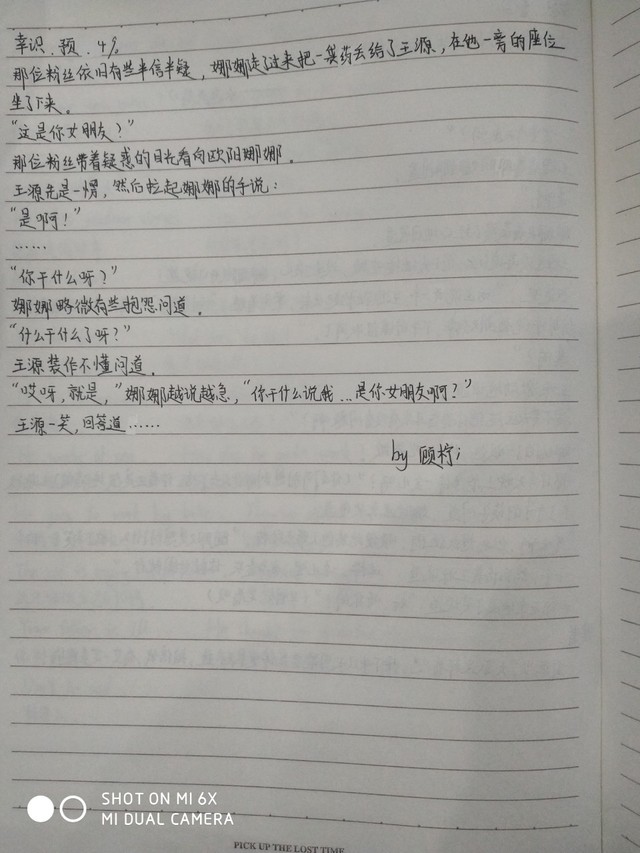 幸识.预.4%
那位粉丝依旧有些半信半疑，娜娜走了过来把一袋药丢给了王源，在他一旁的座位
坐了下来。
“这是你女朋友？”
那位粉丝带着疑惑的目光看向欧阳娜娜。
王源先是一愣，然后拉起娜娜的手说：
“是啊！”
……
“你干什么呀？”
娜娜略微有些抱怨问道。
“什么干什么了呀？”
王源装作不懂问道。
“哎呀，就是，”娜娜越说越急，“你干什么说我...是你女朋友啊？”
王源一笑，回答道……
by 顾柠i
SHOT ON MI 6X
MI DUAL CAMERA
PICK UP THE LOST TIME